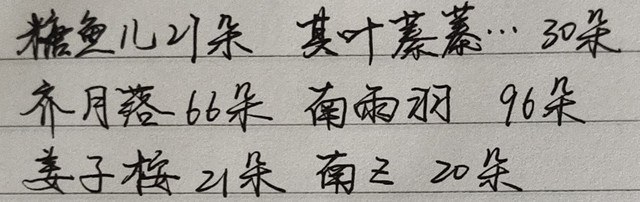 糖鱼儿21朵 其叶蓁蓁… 30朵
齐月落66朵 南雨羽 96朵
姜子桉21朵 南乙 20朵